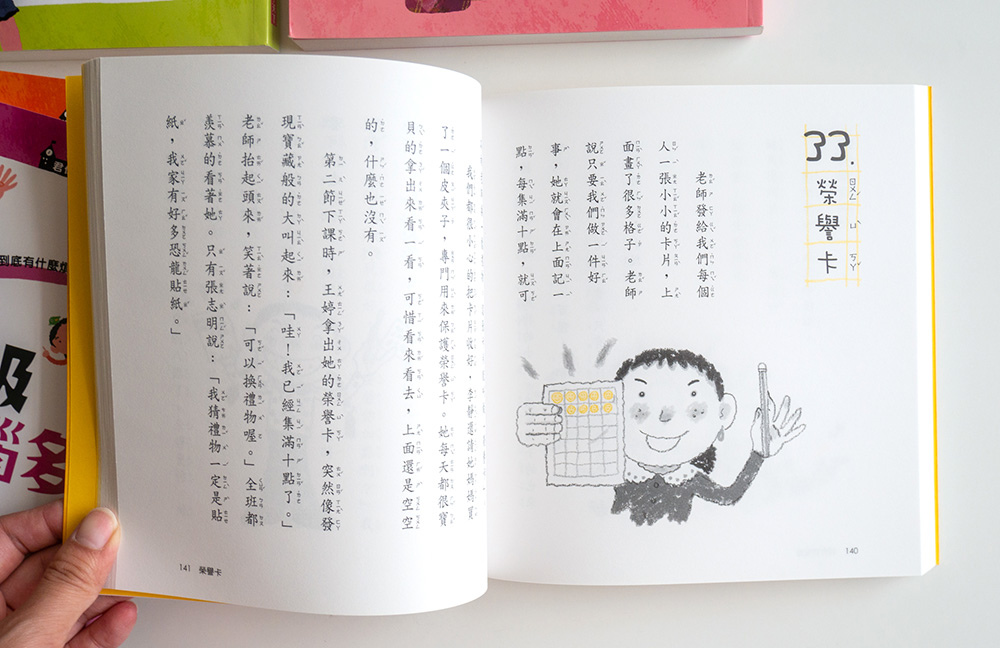 33.
榮譽卡
老師發給我們每個
人一張小小的卡片，上
面畫了很多格子。老師
說只要我們做一件好
事，她就會在上面記一
點，每集滿十點，就可
140
我們都很小心的把卡片收好，李靜還請她媽媽買
了一個皮夾子，專門用來保護榮譽卡。她每天都很寶
貝的拿出來看一看，可惜看來看去，上面還是空空
的，什麼也沒有。
第二節下課時，王婷拿出她的榮譽卡，突然像發
現寶藏般的大叫起來：「哇！我已經集滿十點了。」
老師抬起頭來，笑著說：「可以換禮物喔。」全班都
羨慕的看著她。只有張志明說：「我猜禮物一定是貼
紙，我家有好多恐龍貼紙。」
141 榮譽卡
到底有什麼